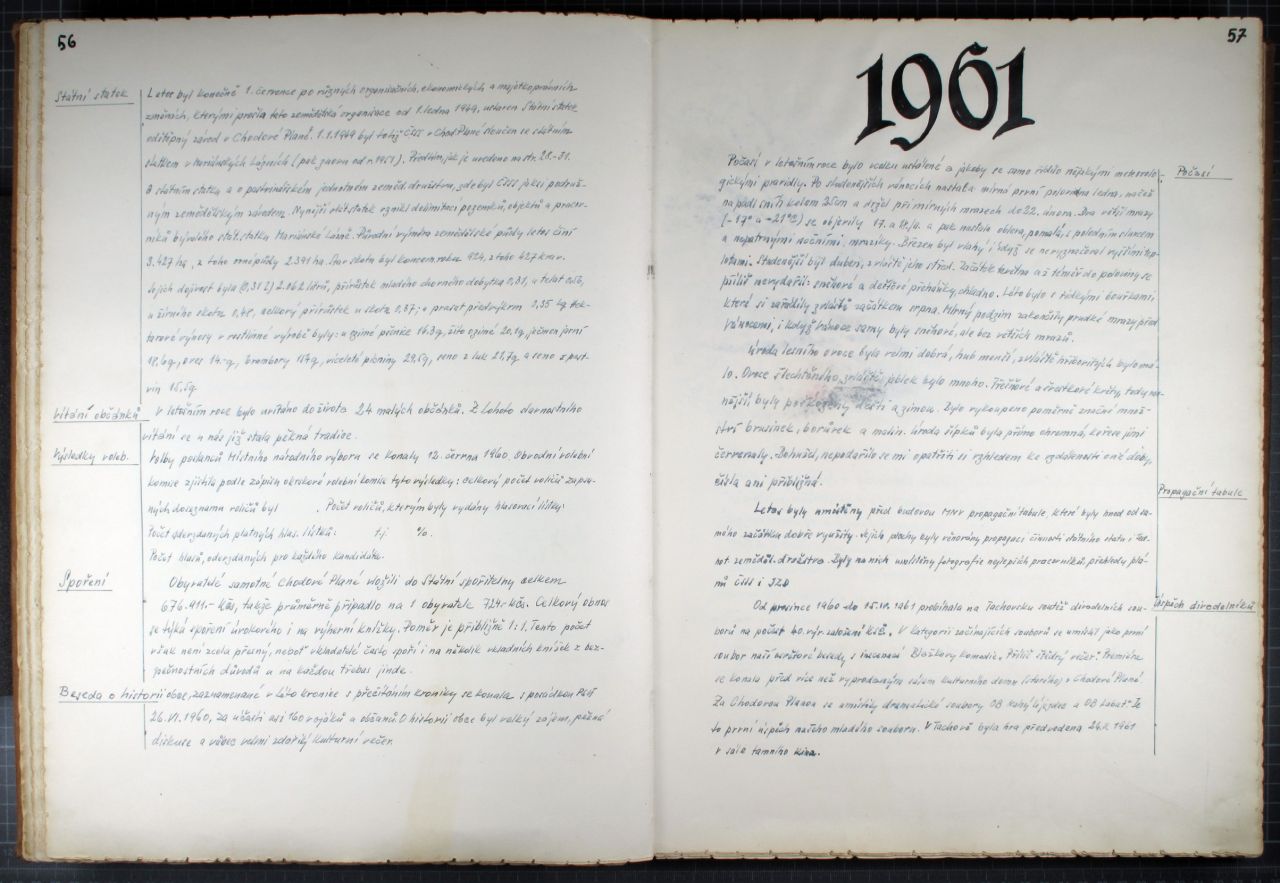 56
Státní statek
Letos byl konečně 1. července po různých organisačních, ekonomických a majetkoprávních
změnách, kterými prošla tato zemědělská organisace od 1. ledna 1949, ustaven Státní statek
odštěpný závod v Chodové Plané. 1.1.1949 byl totiž ČSSS v Chod. Plané sloučen se státním
statkem v Mariánských Lázních (pak znovu od r. 1951). Předtím, jak je uvedeno na str. 28.-31.
o statním statku a o pastvinářském jednotném zeměd. družstvu, zde byl ČSSS jako podruž-
ným zemědělským závodem. Nynější stát. statek vznikl delimitací pozemků, objektů a pracov-
níků bývalého stát. statku Mariánské Lázně. Původní výměra zemědělské půdy letos činí
3.427 ha, z toho orné půdy 2.391 ha. Stav skotu byl koncem roku 924, z toho 427 krav.
Jejich dojivost byla 2.062 litrů, přírůstek mladého chovného dobytka 0,31, u telat 0,56,
u žírného skotu 0,48, celkový přírůstek u skotu 0,57; u prasat předvýkrm 0,35 kg. Hek-
tarové výnosy v rostlinné výrobě byly: u ozimé pšenice 16.3q, žito ozimé 20,1q, ječmen jarní
18,6q, oves 14.-q, brambory 117q, víceleté pícniny 29,5q, seno z luk 21,7q a seno z past-
vin 15.5q.
Vítání občánků
V letošním roce bylo uvítáno do života 24 malých občánků. Z tohoto slavnostního
vítání se u nás již stala pěkná tradice.
Výsledky voleb.
Volby poslanců Místního národního výboru se konaly 12. června 1960. Obvodní volební
komise zjistila podle zápisu okrskové volební komise tyto výsledky: Celkový počet voličů zapsa-
ných do seznamu voličů byl . Počet voličů, kterým byly vydány hlasovací lístky:
Počet odevzdaných platných hlas. lístků: t.j. %.
Počet hlasů, odevzdaných pro každého kandidáta.
Spoření
Obyvatelé samotné Chodové Plané vložili do Státní spořitelny celkem
676.911.- Kčs, takže průměrně připadlo na 1 obyvatele 724.- Kčs. Celkový obnos
se týká spoření úrokového i na výherní knížky. Poměr je přibližně 1:1. Tento počet
však není zcela přesný, neboť vkladatelé často spoří i na několik vkladních knížek z bez-
pečnostních důvodů u na každou třebas jinde.
Beseda o historii obce, zaznamenané v této kronice s přečítáním kroniky se konala s posádkou PS VÚ
26.VI.1960, za účasti asi 160 vojáků a občanů. O historii obce byl velký zájem, pěkná
diskuse a vůbec velmi zdařilý kulturní večer.
57
1961
Počasí
Počasí v letošním roce bylo vcelku ustálené a jakoby se samo řídilo nějakými meteorolo-
gickými pravidly. Po studenějších vánocích nastala mírná první polovina ledna, načež
napadl sníh kolem 25cm a držel při mírných mrazech do 22. února. Dva větší mrazy
(-17° a -21°C) se objevily 17. a 18./II. a pak nastala obleva, pomalá, s poledním sluncem
a nepatrnými nočními mrazíky. Březen byl vlahý i když se nevyznačoval vyššími tep-
lotami. Studenější byl duben, zvláště jeho střed. Začátek května až téměř do poloviny se
příliš nevydařil: sněhové a dešťové přeháňky, chladno. Léto bylo s řídkými bouřkami
které si zařádily zvláště začátkem srpna. Mírný podzim zakončily prudké mrazy před
Vánocemi, i když vánoce samy byly sněhové, ale bez větších mrazů.
Úroda lesního ovoce byla velmi dobrá, hub menší, zvláště hřibovitých bylo má-
lo. Ovoce šlechtěného, zvláště jablek bylo mnoho. Třešňové a švestkové květy, tedy ra-
nější, byly poškozeny dešti a zimou. Bylo vykoupeno poměrně značné množ-
ství brusinek, borůvek a malin. Úroda šípků byla přímo ohromná, keře se jimi
červenaly. Bohužel, nepodařilo se mi opatřiti si vzhledem ke vzdálenosti oné doby,
čísla ani přibližná.
Propagační tabule
Letos byly umístěny před budovou MNV propagační tabule, které byly hned od sa-
mého začátku dobře využity. Jejich plochy byly věnovány propagaci činnosti státního statu i Jed-
not. zeměděl. družstva. Byly na nich umístěny fotografie nejlepších pracovníků, přehledy plá-
nů ČSSS i JZD
Úspěch divadelníků
Od prosince 1960 do 15.IV.1961 probíhala na Tachovsku soutěž divadelních sou-
borů na počest 40. výr. založení KSČ. V kategorii začínajících souborů se umístil jako první
soubor naší osvětové besedy s inscenací Blažkovy komedie „Příliš štědrý večer". Premiéra
se konala před více než vyprodaným sálem kulturního domu (starého) v Chodové Plané.
Za Chodovou Planou se umístily dramatické soubory OB Kuhý Újezdec a OB Labuť. Je
to první úspěch našeho mladého souboru. V Tachově byla hra předvedena 24.II.1961
v sále tamního kina.